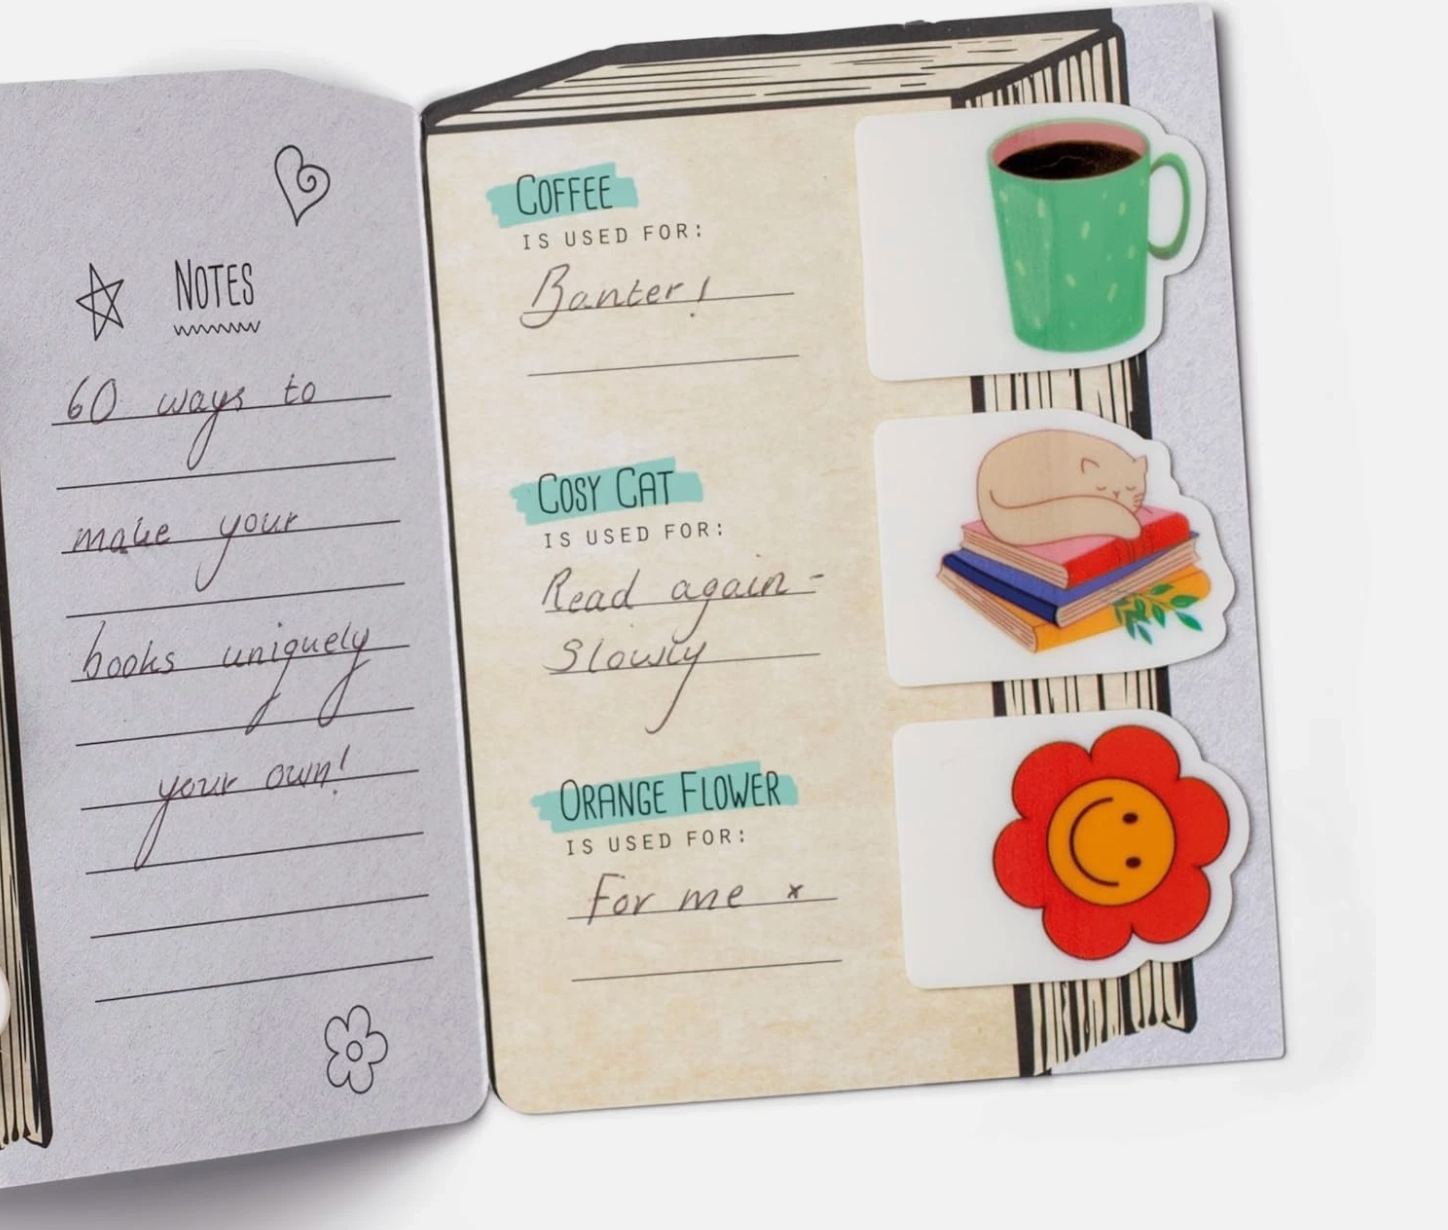 NOTES
60 ways to
make your
books uniquely
your own!
COFFEE
IS USED FOR:
Banter!
COSY CAT
IS USED FOR:
Read again -
Slowly
ORANGE FLOWER
IS USED FOR:
For me x